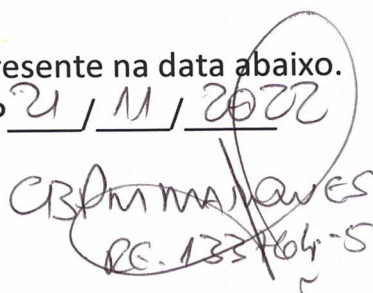 resente na data abaixo.
21 / 11 / 2022
CB PM MARQUES
RE. 133764-5